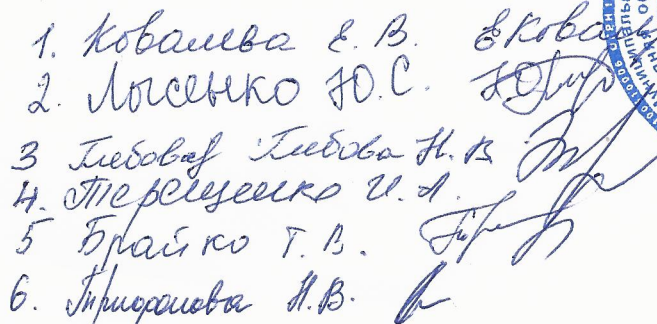 1. Ковалева Е. В. ЕКова
2. Лысенко Ю. С.
3 Глебова Глебова Н. В
4. Терещенко И. А.
5 Брайко Т. В.
6. Н.В.